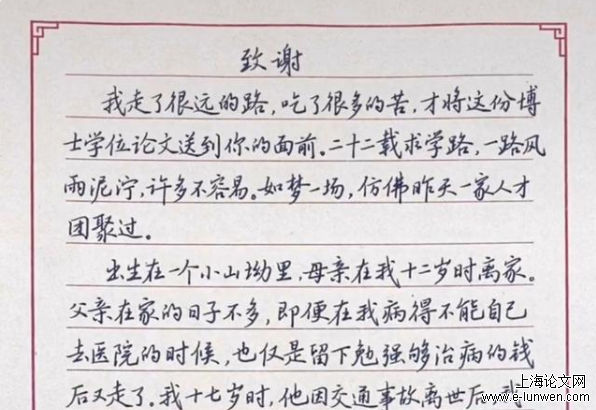 致谢
我走了很远的路，吃了很多的苦，才将这份博
士学位论文送到你的面前。二十二载求学路，一路风
雨泥泞，许多不容易。如梦一场，仿佛昨天一家人才
团聚过。
出生在一个小山坳里，母亲在我十二岁时离家。
父亲在家的日子不多，即便在我病得不能自己
去医院的时候，也仅是留下勉强够治病的钱
后又走了。我十七岁时，他因交通事故离世后，我
上海论文网
www.e-lunwen.com